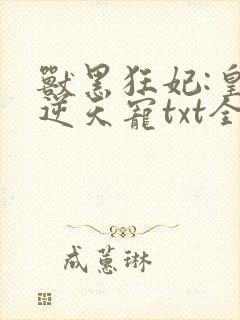 獸黑狂妃:皇
逆天寵txt全
成蕙琳